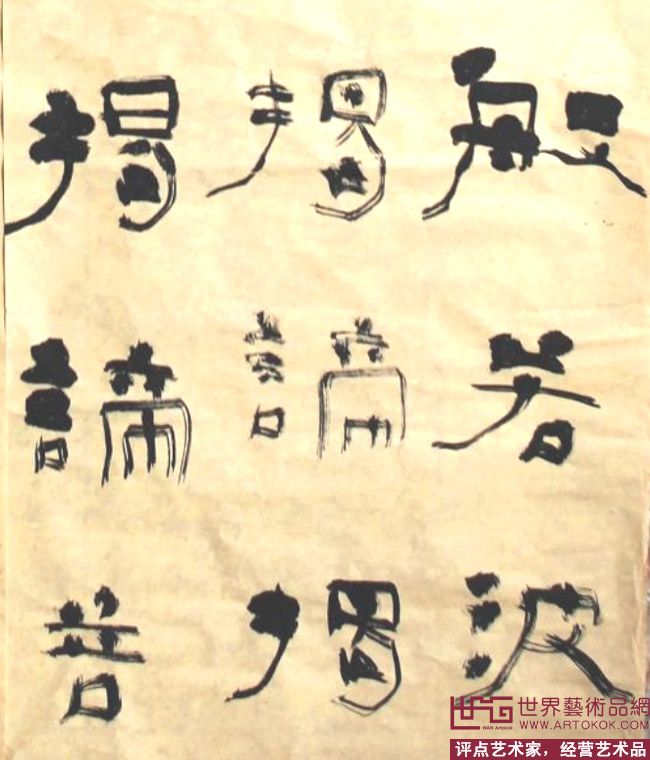 般若波
揭諦揭
揭諦菩
世界藝術品網
WAN Artokok
WWW.ARTOKOK.COM
评点艺术家，经营艺术品